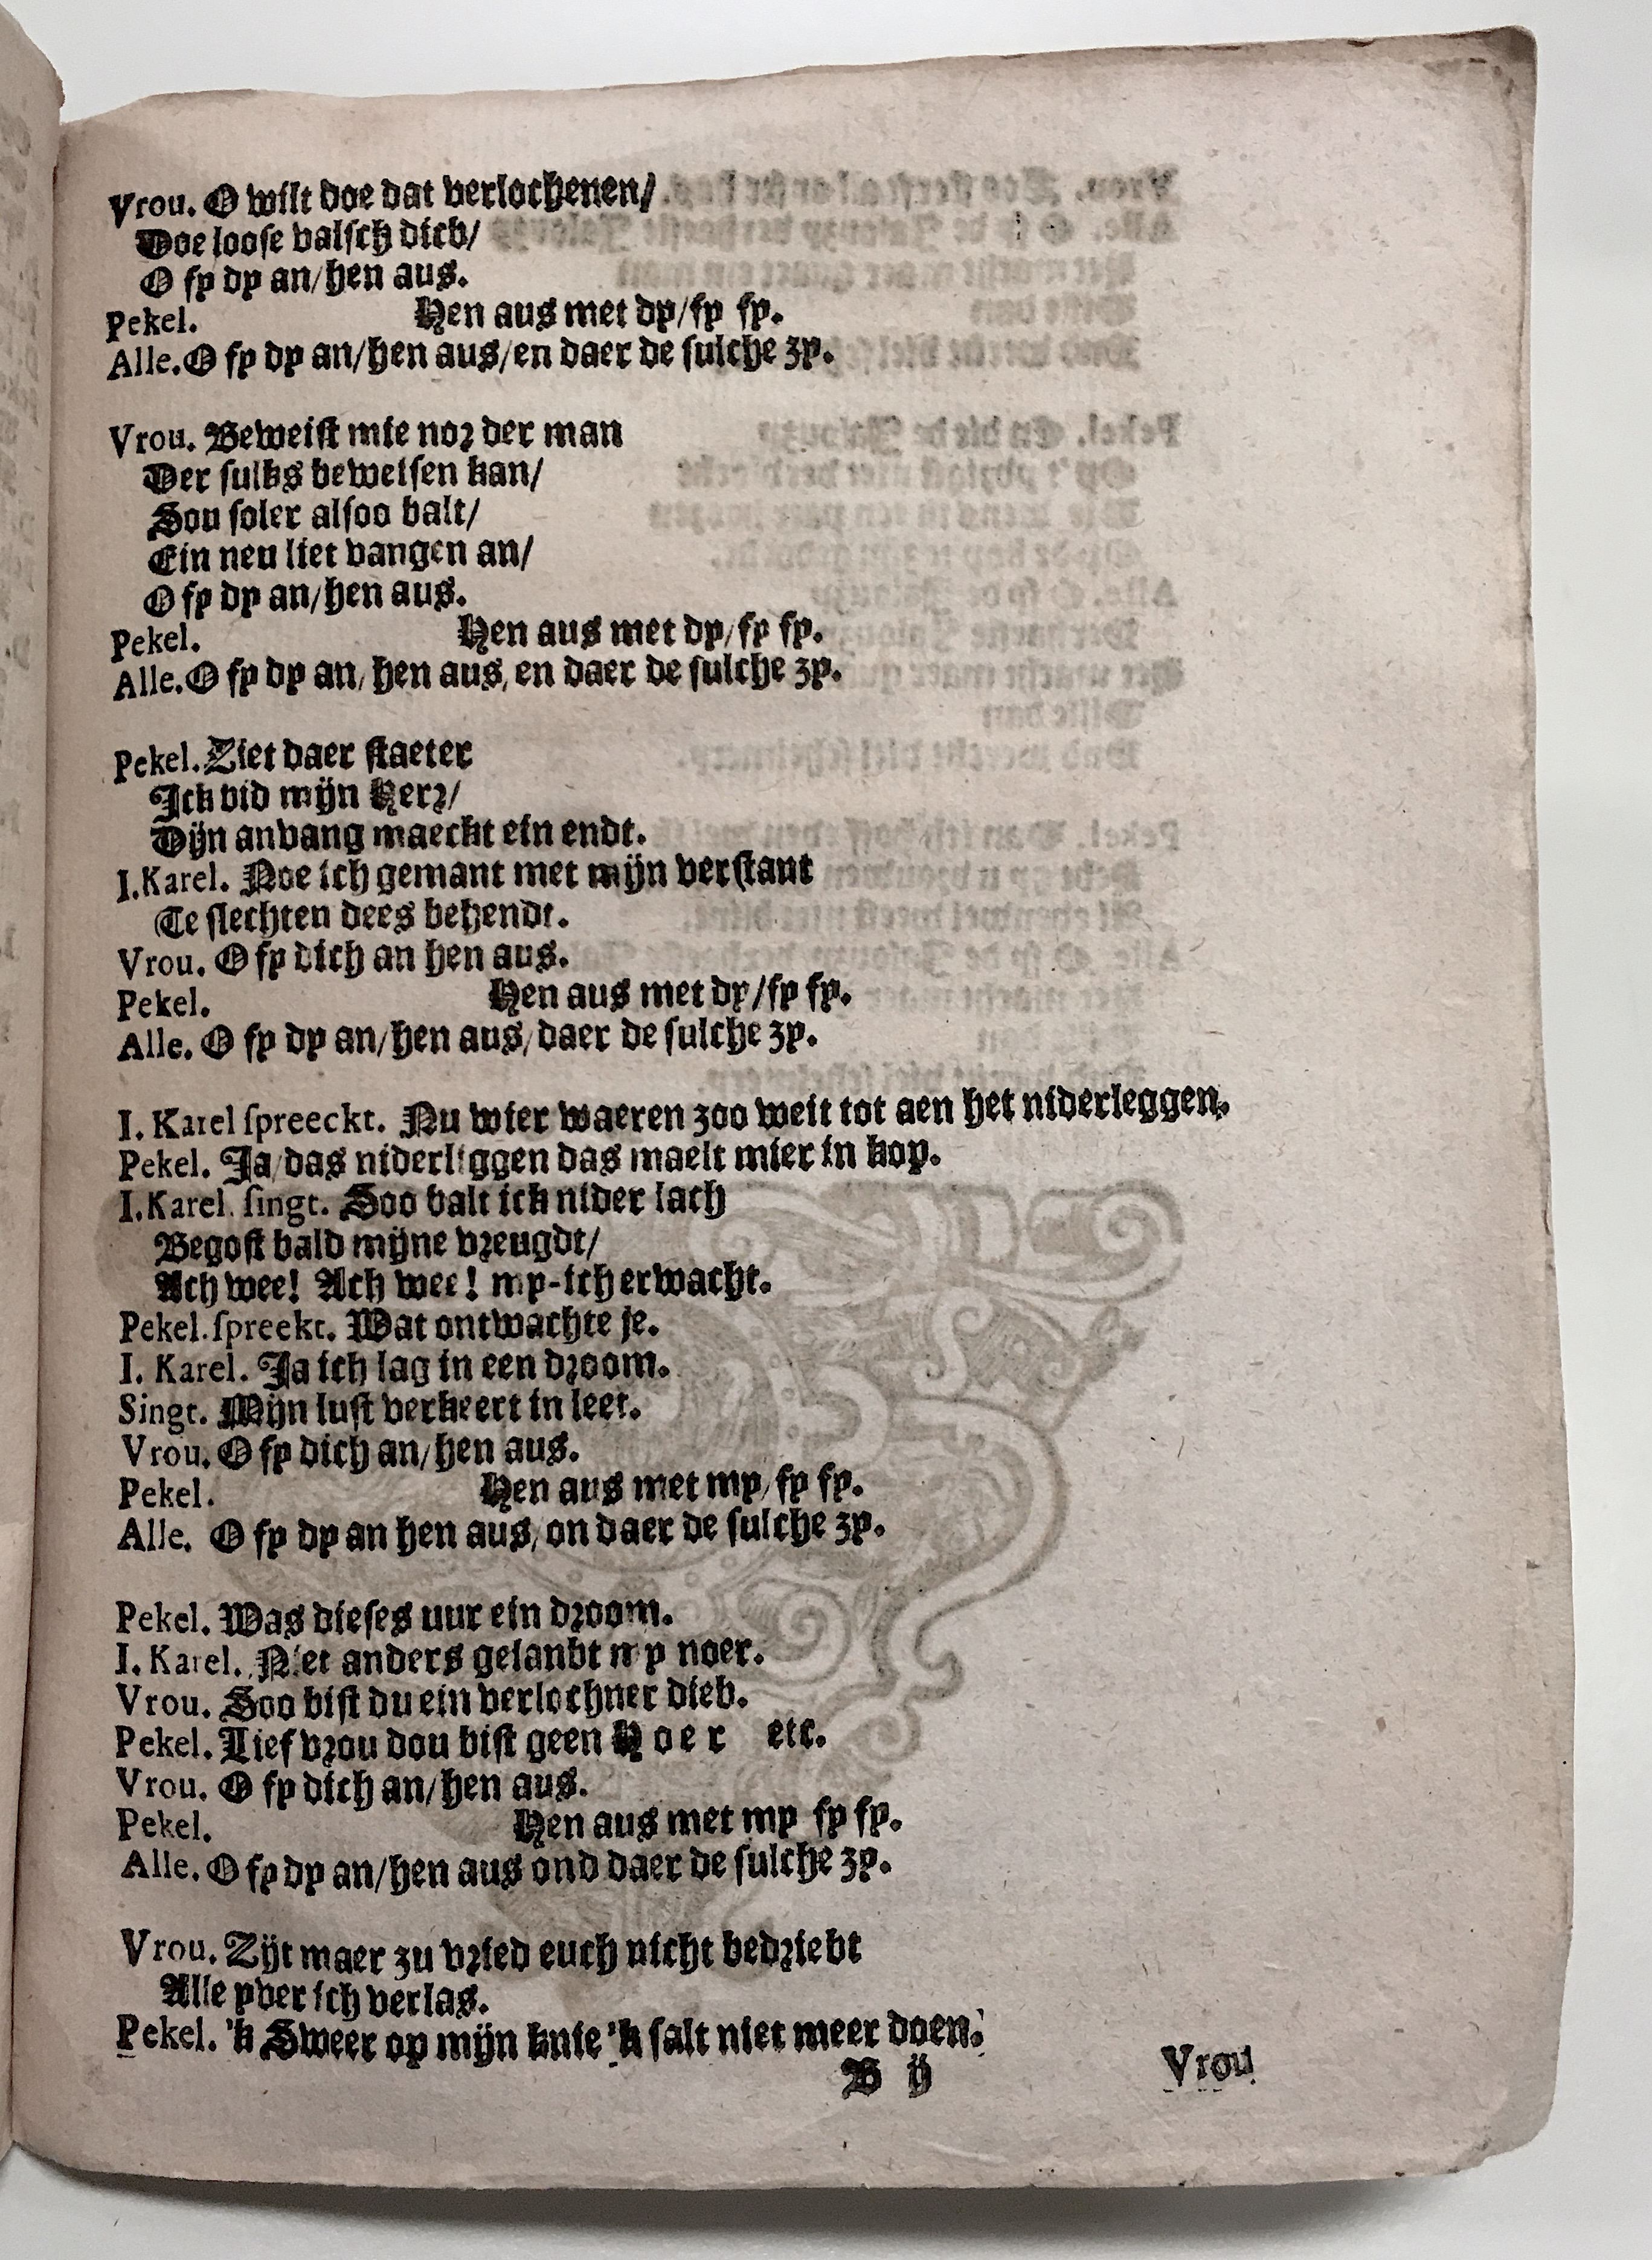 Vrou. O wilt doe dat verlochenen/
Doe loose valsch dieb/
O fy dy an/hen aus.
Pekel. Hen aus met dy/fy fy.
Alle. O fy dy an/hen aus/en daer de sulche zy.
Vrou. Beweist mie nor der man
Der sulks beweisen kan/
Sou soler alsoo balt/
Ein neu liet vangen an/
O fy dy an/hen aus.
Pekel. Hen aus met dy/fy fy.
Alle. O fy dy an/hen aus, en daer de sulche zy.
Pekel. Ziet daer staeter
Ick bid mijn Herr/
Dijn anvang maeckt ein endt.
I. Karel. Noe ich gemant met mijn verstant
Te slechten dees behendt.
Vrou. O fy dich an hen aus.
Pekel. Hen aus met dy/fy fy.
Alle. O fy dy an/hen aus/daer de sulche zy.
I. Karel spreeckt. Nu wier waeren zoo weit tot aen het niderleggen.
Pekel. Ja/das niderliggen das maelt mier in kop.
I. Karel. singt. Soo balt ick nider lach
Begost bald mijne vreugdt/
Ach wee! Ach wee! my-ich erwacht.
Pekel. spreekt. Wat ontwachte je.
I. Karel. Ja ich lag in een droom.
Singt. Mijn lust verkeert in leet.
Vrou. O fy dich an/hen aus.
Pekel. Hen aus met my/fy fy.
Alle. O fy dy an hen aus/on daer de sulche zy.
Pekel. Was dieses uur ein droom.
I. Karel. Niet anders gelanbt my noer.
Vrou. Soo bist du ein verlochner dieb.
Pekel. Lief vrou dou bist geen Hoer etc.
Vrou. O fy dich an/hen aus.
Pekel. Hen aus met my fy fy.
Alle. O fy dy an/hen aus ond daer de sulche zy.
Vrou. Zijt maer zu vried euch nicht bedriebt
Alle yver ich verlas.
Pekel. 'k Sweer op mijn knie 'k salt niet meer doen.
B ij Vrou